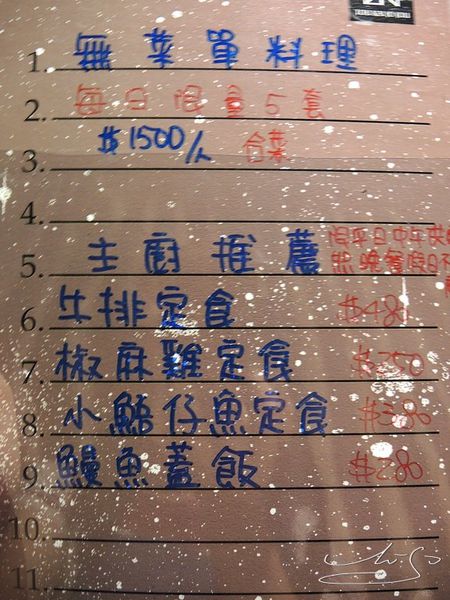 1. 無菜單料理
2. 每日限量5套
3. $1500/人 合菜
4.
5. 主廚推薦 限平日中午供
晚餐假日
6. 牛排定食 $480
7. 椒麻雞定食 $350
8. 小鮹仔魚定食 $380
9. 鰻魚蓋飯 $280
10.
11.